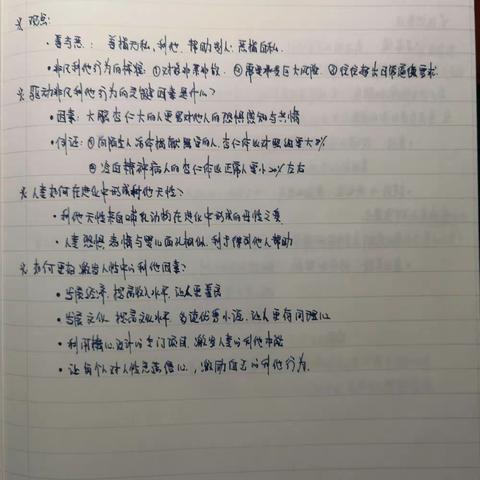 ※ 观点:
• 善与恶: 善指无私、利他、帮助别人; 恶指自私.
• 非凡利他行为的标准: ①对方非亲非故. ②需要承受巨大风险. ③仅仅超出日常道德要求.
※ 驱动非凡利他行为的关键因素是什么?
• 因素: 大脑杏仁大的人更易对他人的恐惧感知与共情
• 例证: ①向陌生人活体捐献肾脏的人, 杏仁体比对照组要大8%
②冷血精神病人的杏仁体比正常人要小20%左右
※ 人类如何在进化中形成利他天性?
• 利他天性来自哺乳动物在进化中形成的母性之爱
• 人类恐惧表情与婴儿面孔相似, 利于得到他人帮助
※ 如何更好激发人性中的利他因素?
• 发展经济, 提高收入水平, 让人更善良
• 发展文化, 提高文化水平, 多读优秀小说, 让人更有同理心
• 利用精心设计的专门项目, 激发人类的利他本能
• 让每个人对人性充满信心, 激励自己的利他行为.